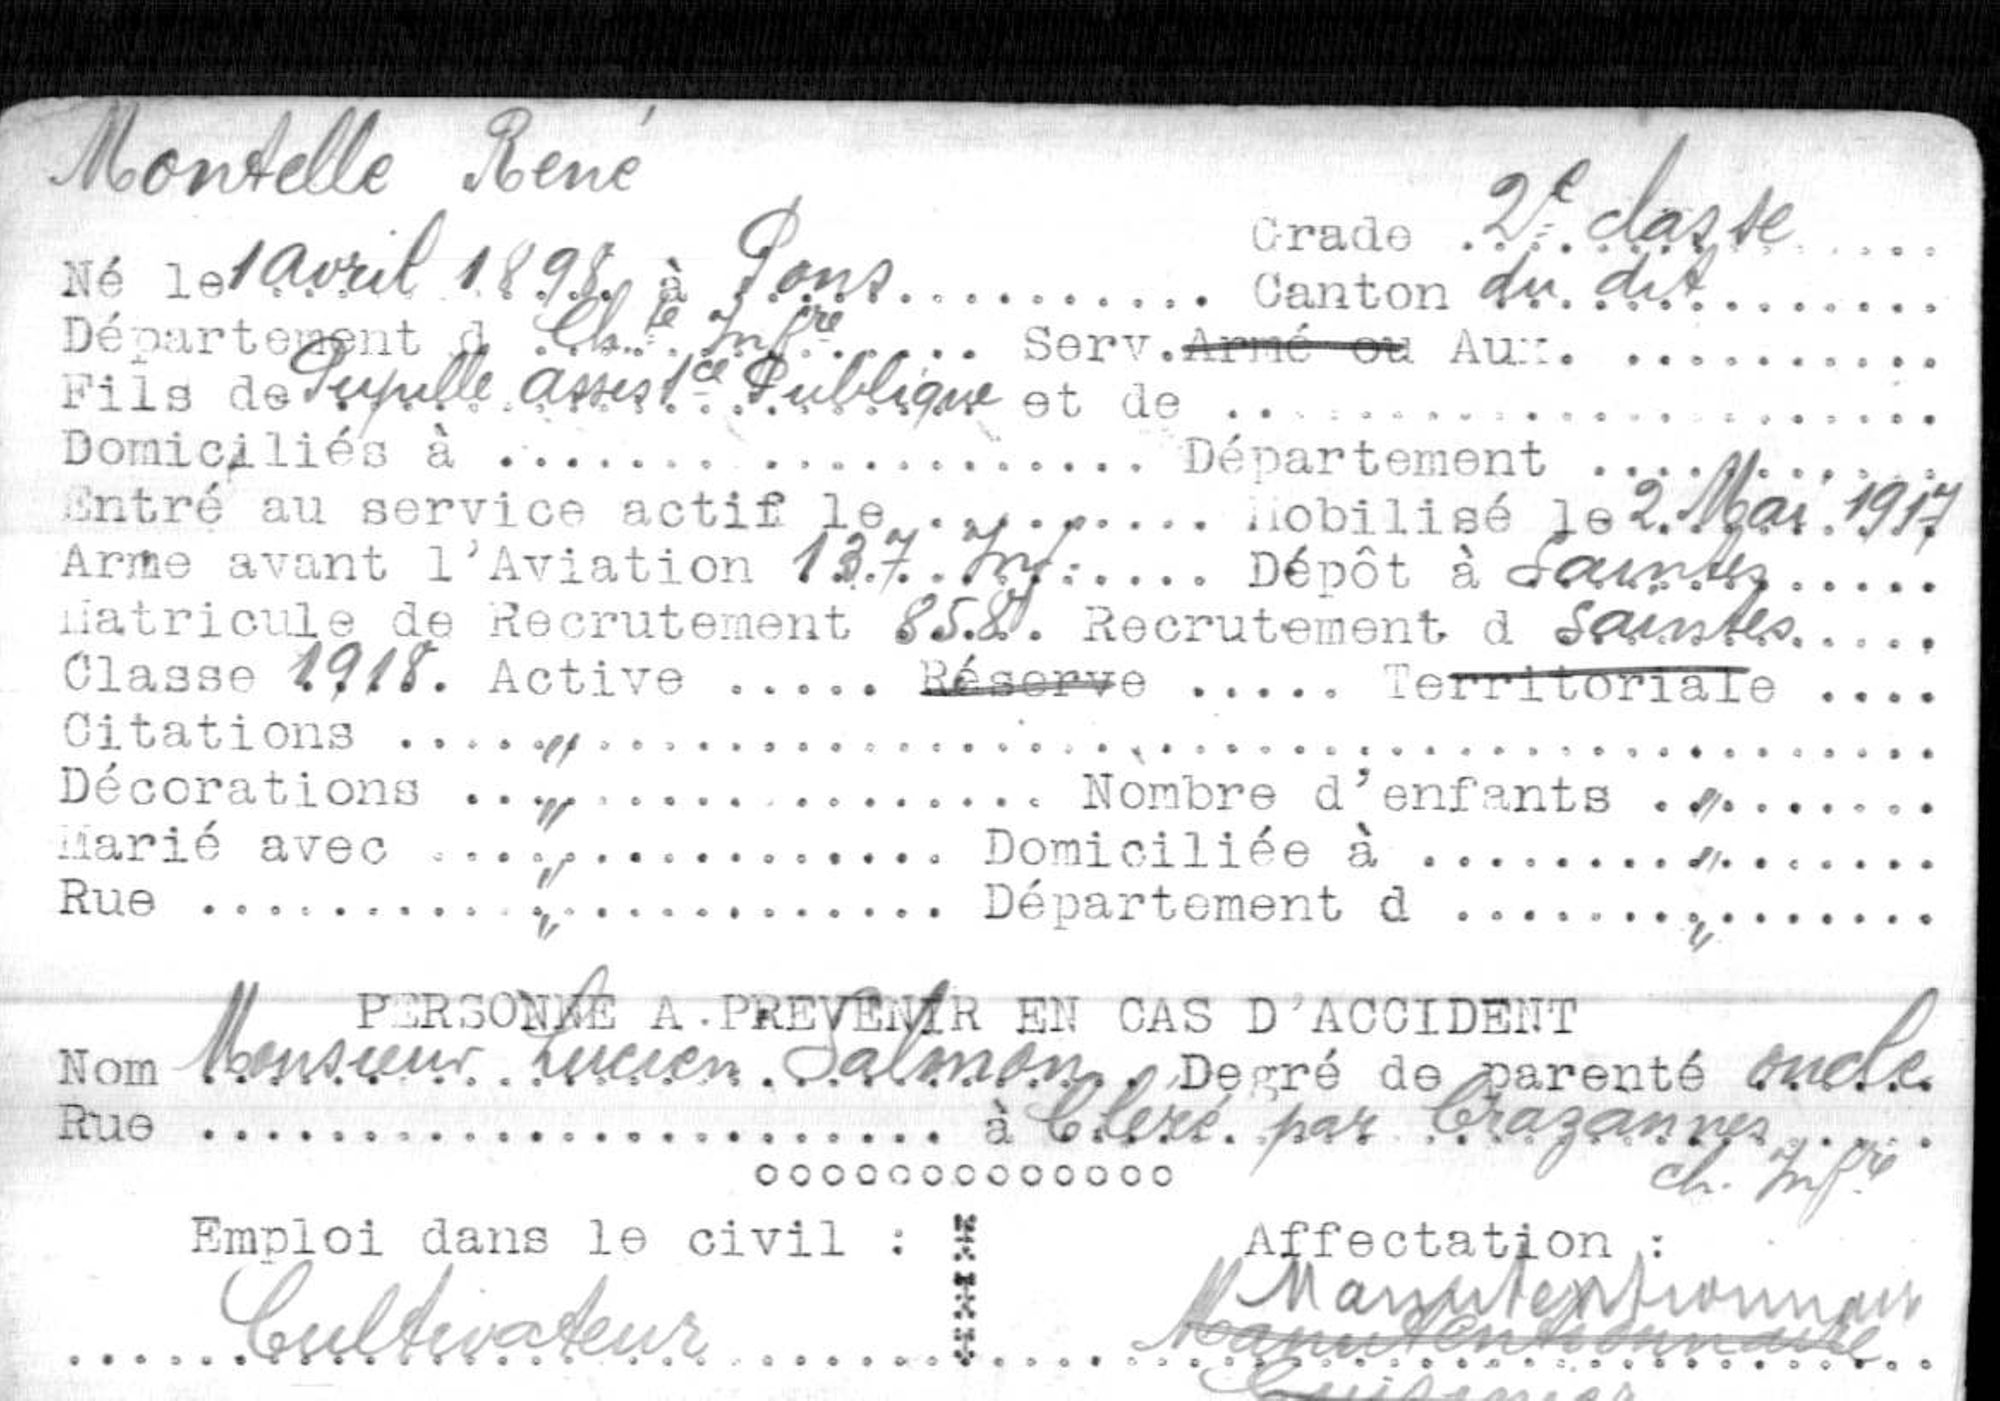 Montelle René
Grade 2e classe
Né le 1 avril 1898 à Pons Canton du dit
Département d Ch.te Infre Serv. Armé ou Aux.
Fils de Pupille assistce Publique et de
Domiciliés à Département
Entré au service actif le Mobilisé le 2 Mai 1917
Arme avant l'Aviation 137 Inf. Dépôt à Saintes
Matricule de Recrutement 858. Recrutement d Saintes
Classe 1918. Active Réserve Territoriale
Citations "
Décorations " Nombre d'enfants "
Marié avec " Domiciliée à "
Rue " Département d "
PERSONNE A PREVENIR EN CAS D'ACCIDENT
Nom Monsieur Lucien Salmon Degré de parenté oncle
Rue à Cleré par Crazannes
ch. Infre
Emploi dans le civil : Affectation :
Manutentionnaire
Cultivateur Manutentionnaire
Cuisinier